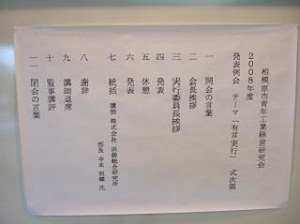 相模原市青年工業経営研究会
2008年度
発表例会 テーマ「有言実行」 式次第
一 開会の言葉
二 会長挨拶
三 実行委員長挨拶
四 発表
五 休憩
六 発表
七 総括
講師 株式会社 浜銀総合研究所
部長 寺本 明輝 氏
八 謝辞
九 講師退席
十 監事講評
一一 閉会の言葉